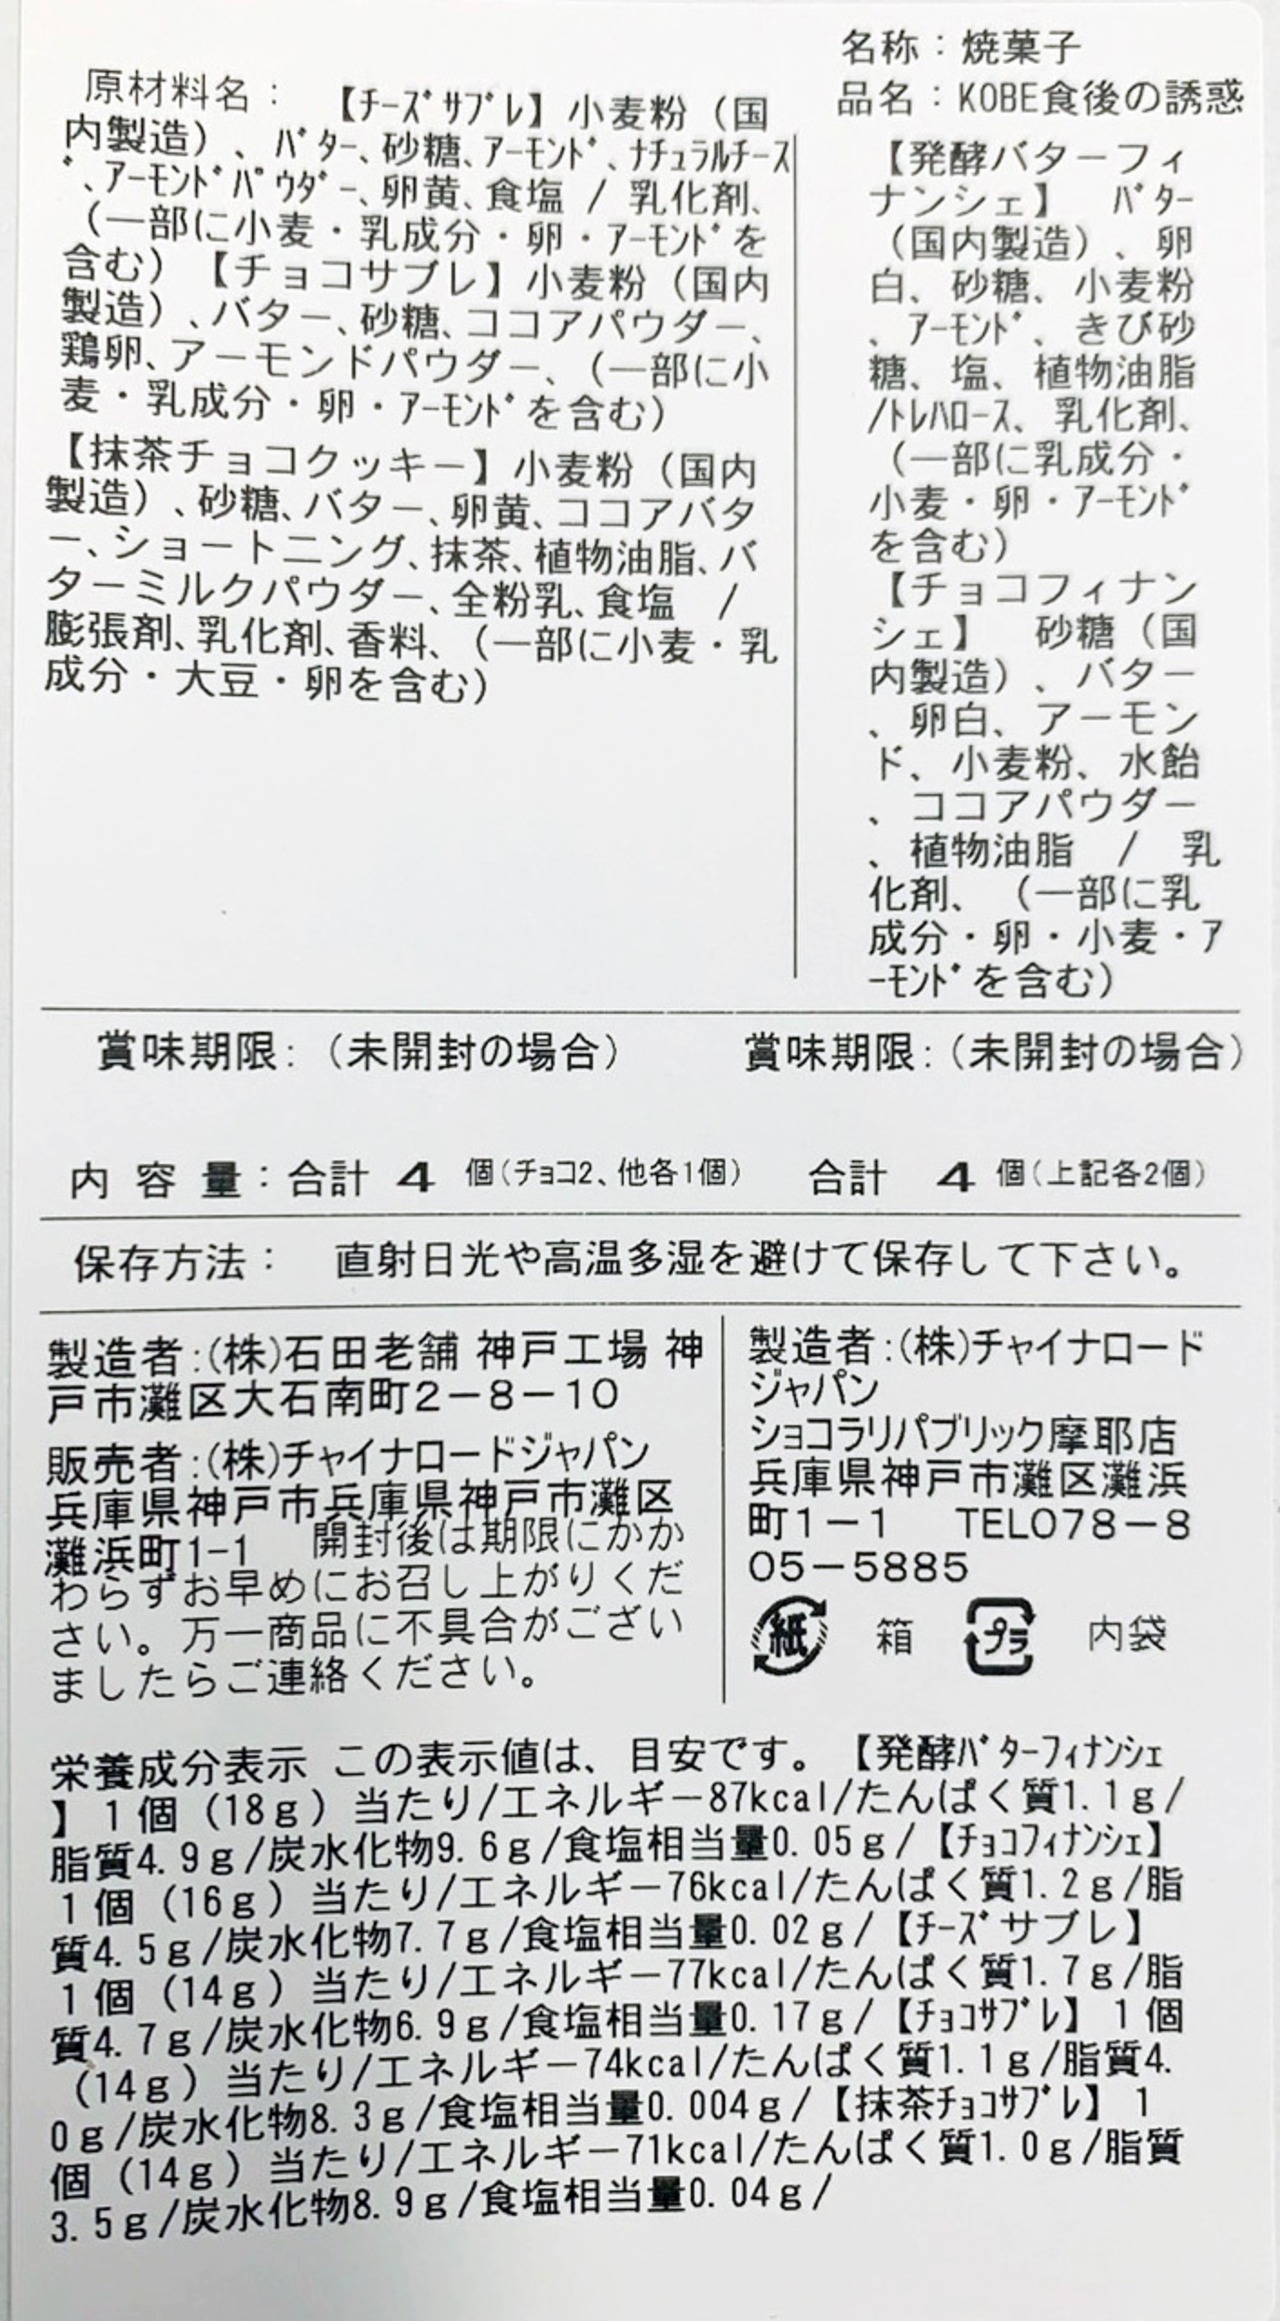 名称：焼菓子
品名：KOBE食後の誘惑
原材料名：　【ﾁｰｽﾞｻﾌﾞﾚ】小麦粉（国
内製造）、ﾊﾞﾀｰ、砂糖、ｱｰﾓﾝﾄﾞ、ﾅﾁｭﾗﾙﾁｰｽ
ﾞ、ｱｰﾓﾝﾄﾞﾊﾟｳﾀﾞｰ、卵黄、食塩 / 乳化剤、
（一部に小麦・乳成分・卵・ｱｰﾓﾝﾄﾞを
含む）【チョコサブレ】小麦粉（国内
製造）、バター、砂糖、ココアパウダー、
鶏卵、アーモンドパウダー、（一部に小
麦・乳成分・卵・ｱｰﾓﾝﾄﾞを含む）
【抹茶チョコクッキー】小麦粉（国内
製造）、砂糖、バター、卵黄、ココアバタ
ー、ショートニング、抹茶、植物油脂、バ
ターミルクパウダー、全粉乳、食塩　/
膨張剤、乳化剤、香料、（一部に小麦・乳
成分・大豆・卵を含む）
【発酵バターフィ
ナンシェ】　ﾊﾞﾀｰ
（国内製造）、卵
白、砂糖、小麦粉
、ｱｰﾓﾝﾄﾞ、きび砂
糖、塩、植物油脂
/ﾄﾚﾊﾛｰｽ、乳化剤、
（一部に乳成分・
小麦・卵・ｱｰﾓﾝﾄﾞ
を含む）
【チョコフィナン
シェ】　砂糖（国
内製造）、バター
、卵白、アーモン
ド、小麦粉、水飴
、ココアパウダー
、植物油脂　/　乳
化剤、（一部に乳
成分・卵・小麦・ｱ
ｰﾓﾝﾄﾞを含む）
賞味期限：（未開封の場合）　賞味期限：（未開封の場合）
内 容 量：合計 4 個（ﾁｮｺ2、他各1個）　合計 4 個（上記各2個）
保存方法：　直射日光や高温多湿を避けて保存して下さい。
製造者：(株)石田老舗 神戸工場 神
戸市灘区大石南町2－8－10
販売者：(株)チャイナロードジャパン
兵庫県神戸市兵庫県神戸市灘区
灘浜町1-1　開封後は期限にかか
わらずお早めにお召し上がりくだ
さい。万一商品に不具合がござい
ましたらご連絡ください。
製造者：(株)チャイナロード
ジャパン
ショコラリパブリック摩耶店
兵庫県神戸市灘区灘浜
町1－1　TEL078－8
05－5885
紙 箱 プラ 内袋
栄養成分表示 この表示値は、目安です。【発酵ﾊﾞﾀｰﾌｨﾅﾝｼｪ
】1個（18g）当たり/エネルギー87kcal/たんぱく質1.1g/
脂質4.9g/炭水化物9.6g/食塩相当量0.05g/【ﾁｮｺﾌｨﾅﾝｼｪ】
1個（16g）当たり/エネルギー76kcal/たんぱく質1.2g/脂
質4.5g/炭水化物7.7g/食塩相当量0.02g/【ﾁｰｽﾞサブレ】
1個（14g）当たり/エネルギー77kcal/たんぱく質1.7g/脂
質4.7g/炭水化物6.9g/食塩相当量0.17g/【ﾁｮｺｻﾌﾞﾚ】1個
（14g）当たり/エネルギー74kcal/たんぱく質1.1g/脂質4.
0g/炭水化物8.3g/食塩相当量0.004g/【抹茶ﾁｮｺｻﾌﾞﾚ】1
個（14g）当たり/エネルギー71kcal/たんぱく質1.0g/脂質
3.5g/炭水化物8.9g/食塩相当量0.04g/